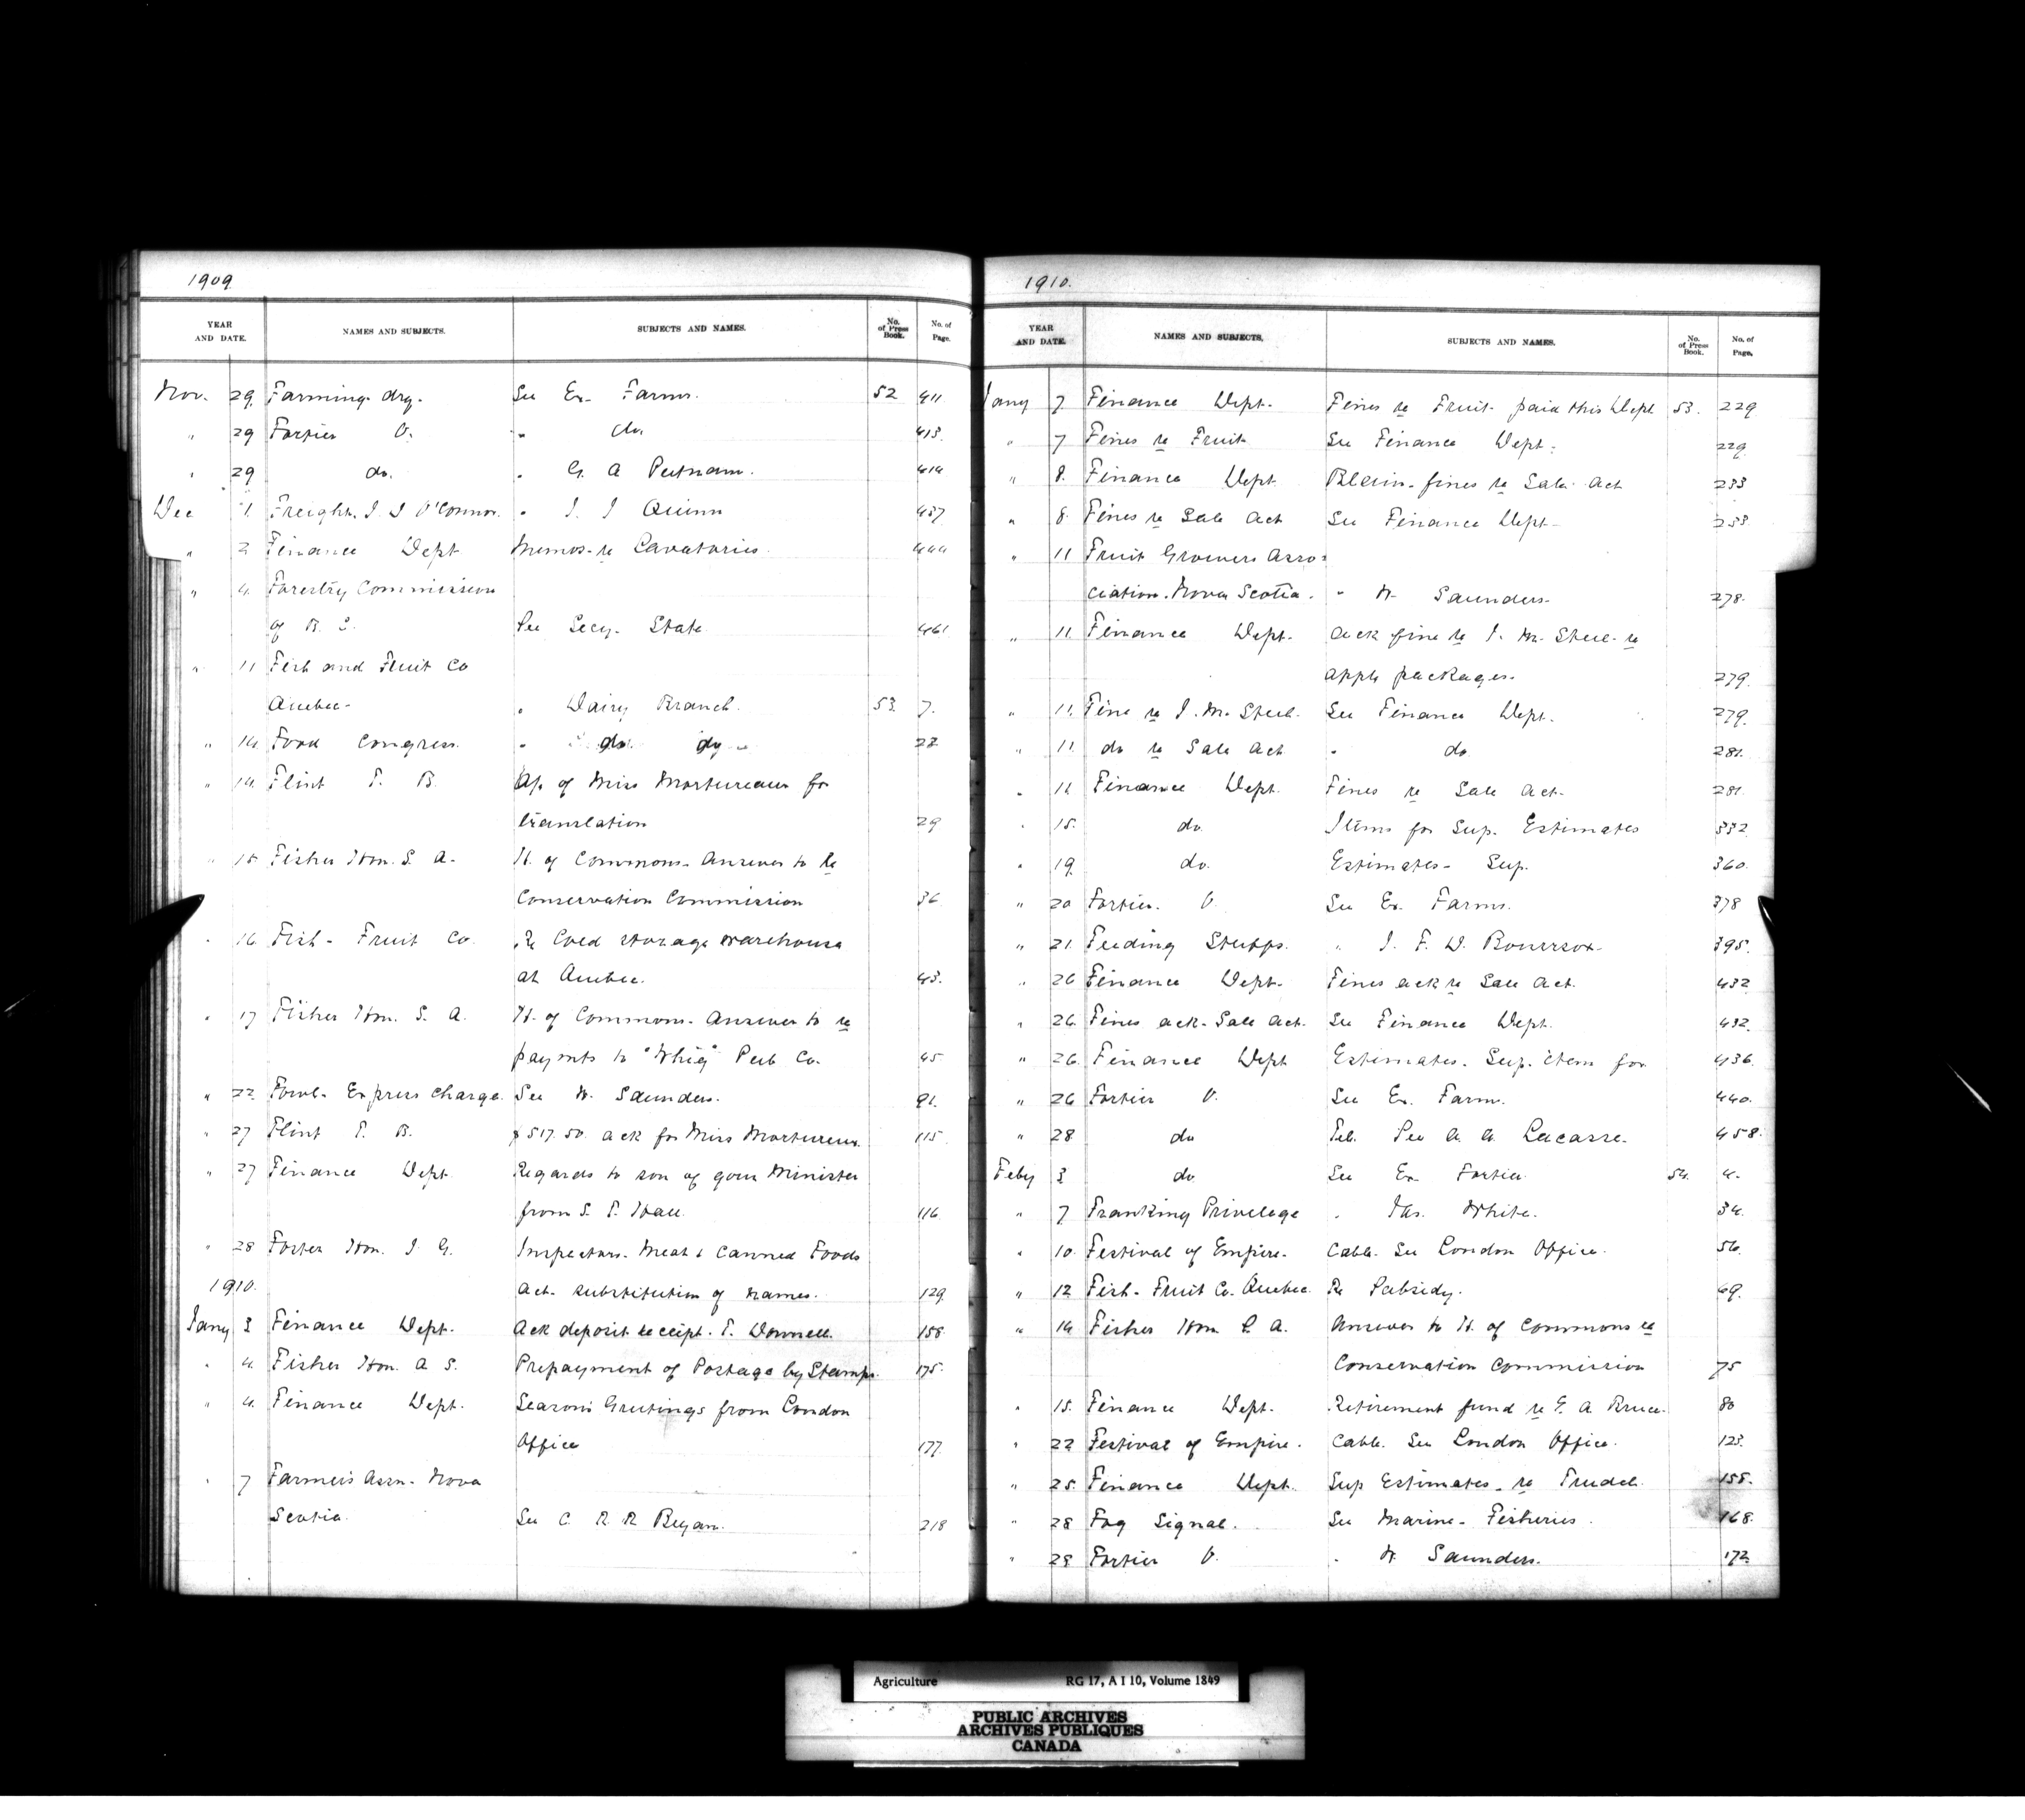 1909
YEAR AND DATE. NAMES AND SUBJECTS. SUBJECTS AND NAMES. No. of Press Book. No. of Page.
Nov. 29 Farming dry. See Ex. Farms. 52 411
" 29 Fortier O. " do. 413
" 29 do. " G. A Putnam. 414
Dec 1. Freight. J. J O'Connor. " J. J Quinn 437
" 2 Finance Dept Memos. re Lavatories. 444
" 4. Forestry Commission
of B. C. See Secy. State 461
" 11 Fish and Fruit Co
Quebec. " Dairy Branch. 53 7.
" 14. Food Congress. " do. 22
" 14. Flint T. B. Ap. of Miss Martureaux for
translation 29
" 15 Fisher Hon. S. A. H. of Commons. Answer to re
Conservation Commission 36
" 16 Fish - Fruit Co. Re Cold storage warehouse
at Quebec. 43.
" 17 Fisher Hon. S. A. H. of Commons. Answer to re
payments to "Whig" Pub Co. 45
" 22 Fowl. Express charge. See W. Saunders. 91.
" 27 Flint T. B. $517.50. ack for Miss Martureux 115
" 27 Finance Dept. Regards to son of your Minister
from S. P. Hall. 116
" 28 Foster Hon. J. G. Inspectors. Meat & Canned Foods
1910. Act. substitution of names. 129
Jany 3 Finance Dept. Ack deposit receipt. T. Donnell. 158
" 4. Fisher Hon. A S. Prepayment of Postage by Stamps. 175.
" 4. Finance Dept. Season's Greetings from London
Office 177
" 7 Farmers Assn. Nova
Scotia. See C. R. R Bryan. 218
1910.
YEAR AND DATE. NAMES AND SUBJECTS. SUBJECTS AND NAMES. No. of Press Book. No. of Page.
Jany 7 Finance Dept. Fines re Fruit paid this Dept 53. 229
" 7 Fines re Fruit See Finance Dept. 229
" 8. Finance Dept. Blesin. fines re Sale Act 233
" 8. Fines re Sale Act See Finance Dept 233
" 11 Fruit Growers Asso-
ciation. Nova Scotia. " W. Saunders. 278.
" 11. Finance Dept. Ack fine re J. M. Steel re
apple packages. 279.
" 11. Fine re J. M. Steel. See Finance Dept. 279.
" 11. do re Sale Act " do 281.
" 11. Finance Dept. Fines re Sale Act. 281
" 15. do. Items for Sup. Estimates 332
" 19. do. Estimates - Sup. 360.
" 20 Fortier. O. See Ex. Farms. 378
" 21. Feeding Stuffs. " J. F. D. 395.
" 26 Finance Dept. Fines ack re Sale Act. 432
" 26. Fines ack. Sale Act. See Finance Dept. 432.
" 26 Finance Dept Estimates. Sup. item for 436.
" 26 Fortier O. See Ex. Farm. 440.
" 28 do Tel. See A. A. Lacasse. 458.
Feby 3 do. See Ex. Fortier. 54. 4.
" 7 Franking Privelege " Jas. White. 34.
" 10. Festival of Empire. Cable. See London Office. 56.
" 12 Fish - Fruit Co. Quebec. Re Subsidy. 69.
" 14 Fisher Hon S. A. Answer to H. of Commons re
Conservation Commission 75
" 15. Finance Dept. Retirement fund re G. A. Bruce. 80
" 22 Festival of Empire. Cable. See London Office. 123.
" 25. Finance Dept. Sup Estimates. re Trudel. 155.
" 28 Fog Signal. See Marine - Fisheries. 168.
" 28 Fortier O. " W. Saunders. 172
Agriculture RG 17, A I 10, Volume 1849
PUBLIC ARCHIVES
ARCHIVES PUBLIQUES
CANADA